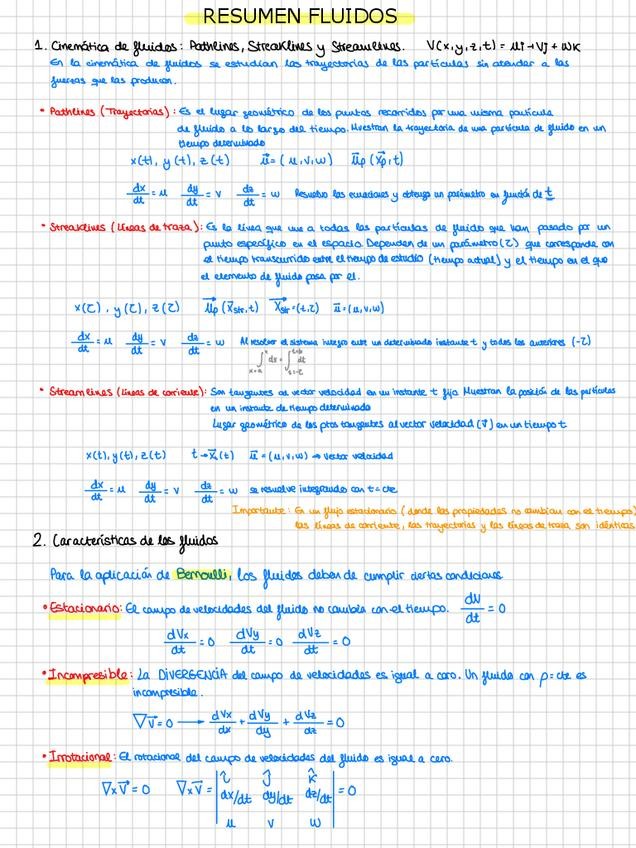 RESUMEN FLUIDOS
1. Cinemática de fluidos: Pathlines, Streaklines y Streamlines. V(x,y,z,t) = ui+vj+wk
En la cinemática de fluidos se estudian las trayectorias de las partículas sin atender a las
fuerzas que las producen.
• Pathlines (Trayectorias): Es el lugar geométrico de los puntos recorridos por una misma partícula
de fluido a lo largo del tiempo. Muestran la trayectoria de una partícula de fluido en un
tiempo determinado
x(t), y(t), z(t) u⃗ = (u,v,w) u⃗p (x⃗p,t)
dx/dt = u dy/dt = v dz/dt = w Resuelvo las ecuaciones y obtengo un parámetro en función de t
• Streaklines (líneas de traza): Es la línea que une a todas las partículas de fluido que han pasado por un
punto específico en el espacio. Dependen de un parámetro (τ) que corresponde con
el tiempo transcurrido entre el tiempo de estudio (tiempo actual) y el tiempo en el que
el elemento de fluido pasa por el.
x(τ), y(τ), z(τ) u⃗p (x⃗str,t) x⃗str=(t,τ) u⃗=(u,v,w)
dx/dt = u dy/dt = v dz/dt = w Al resolver el sistema integro entre un determinado instante t y todos los anteriores (-τ)
• Streamlines (líneas de corriente): Son tangentes al vector velocidad en un instante t fijo. Muestran la posición de las partículas
en un instante de tiempo determinado
Lugar geométrico de los ptos tangentes al vector velocidad (v⃗) en un tiempo t
x(t), y(t), z(t) u⃗ = (u,v,w) → vector velocidad
dx/dt = u dy/dt = v dz/dt = w se resuelve integrando con t=cte
Importante: En un flujo estacionario (donde las propiedades no cambian con el tiempo)
las líneas de corriente, las trayectorias y las líneas de traza son idénticas
2. Características de los fluidos
Para la aplicación de Bernoulli, los fluidos deben de cumplir ciertas condiciones
• Estacionario: El campo de velocidades del fluido no cambia con el tiempo. dV/dt = 0
dVx/dt = 0 dVy/dt = 0 dVz/dt = 0
• Incompresible: La DIVERGENCIA del campo de velocidades es igual a cero. Un fluido con ρ=cte es
incompresible.
∇v⃗ = 0 → dVx/dx + dVy/dy + dVz/dz = 0
• Irrotacional: El rotacional del campo de velocidades del fluido es igual a cero.
∇xV⃗ = 0 ∇xV⃗ = | î ĵ k̂
dx/dt dy/dt dz/dt | = 0
u v w